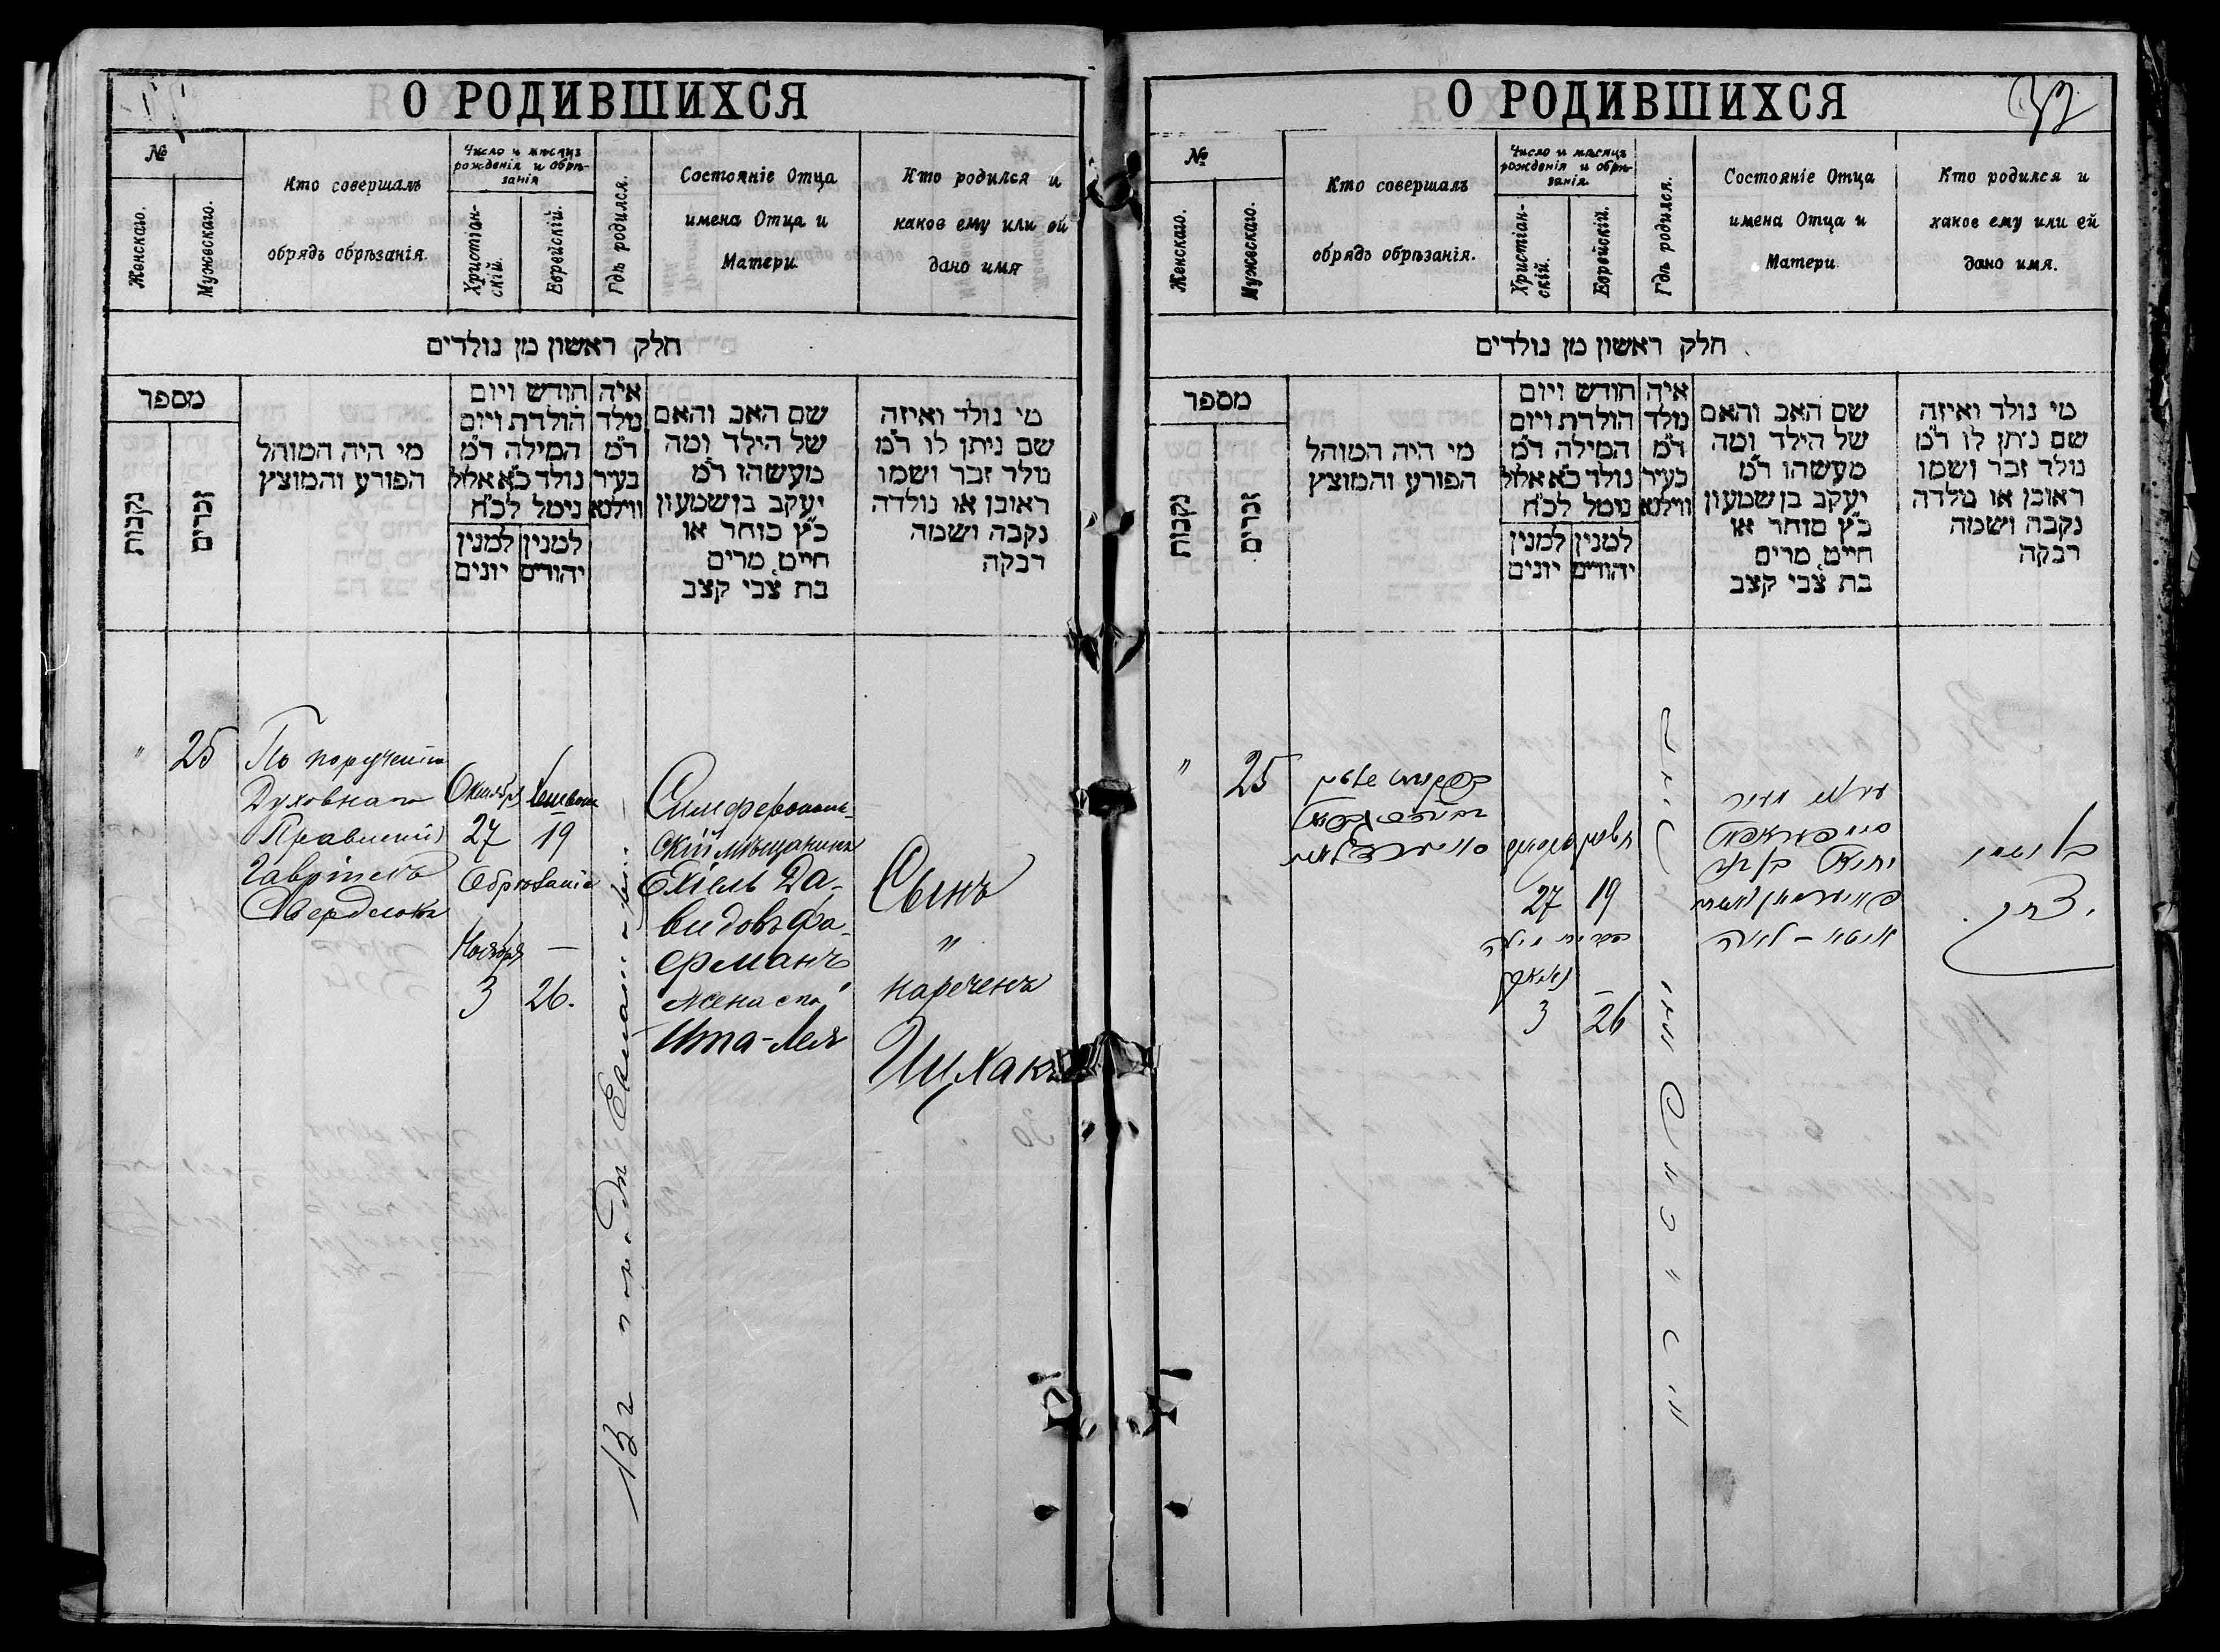 О РОДИВШИХСЯ
№
Женскаго.
Мужескаго.
Кто совершалъ
обрядъ обрѣзанія.
Число и мѣсяцъ
рожденія и обрѣ-
занія
Христіан-
скій.
Еврейскій.
Гдѣ родился.
Состояніе Отца
имена Отца и
Матери
Кто родился и
какое ему или ей
дано имя
חלק ראשון מן נולדים
מספר
נקבות
זכרים
מי היה המוהל
הפורע והמוצץ
חודש ויום
הולדת ויום
המילה ד״מ
נולד כ״א אלול
נימל לכ״ח
למנין יהודים
למנין יונים
איה
נולד
ד״מ
בעיר
ווילנא
שם האב והאם
של הילד ומה
מעשהו ד״מ
יעקב בן שמעון
כ״ץ סוחר או
חייט, מרים
בת צבי קצב
מי נולד ואיזה
שם ניתן לו ד״מ
נולד זכר ושמו
ראובן או נולדה
נקבה ושמה
רבקה
"
25
По порученію
Духовнаго
Правленія
Гаврінскъ
Свердловъ
Октября
27
19
Обрѣзаніе
Ноября —
3
26.
Симферополь-
скій мѣщанинъ
Ехіель Да-
видовъ Фа-
ерманъ
жена его
Ита-Лея
Сынъ
"
нареченъ
Ицхакъ
О РОДИВШИХСЯ
32
№
Женскаго.
Мужескаго.
Кто совершалъ
обрядъ обрѣзанія.
Число и мѣсяцъ
рожденія и обрѣ-
занія.
Христіан-
скій.
Еврейскій.
Гдѣ родился.
Состояніе Отца
имена Отца и
Матери
Кто родился и
какое ему или ей
дано имя.
חלק ראשון מן נולדים
מספר
נקבות
זכרים
מי היה המוהל
הפורע והמוצץ
חודש ויום
הולדת ויום
המילה ד״מ
נולד כ״א אלול
נימל לכ״ח
למנין יהודים
למנין יונים
איה
נולד
ד״מ
בעיר
ווילנא
שם האב והאם
של הילד ומה
מעשהו ד״מ
יעקב בן שמעון
כ״ץ סוחר או
חייט, מרים
בת צבי קצב
מי נולד ואיזה
שם ניתן לו ד״מ
נולד זכר ושמו
ראובן או נולדה
נקבה ושמה
רבקה
"
25
27
19
3
26
איטא - לאה
בן ושמו
יצחק.